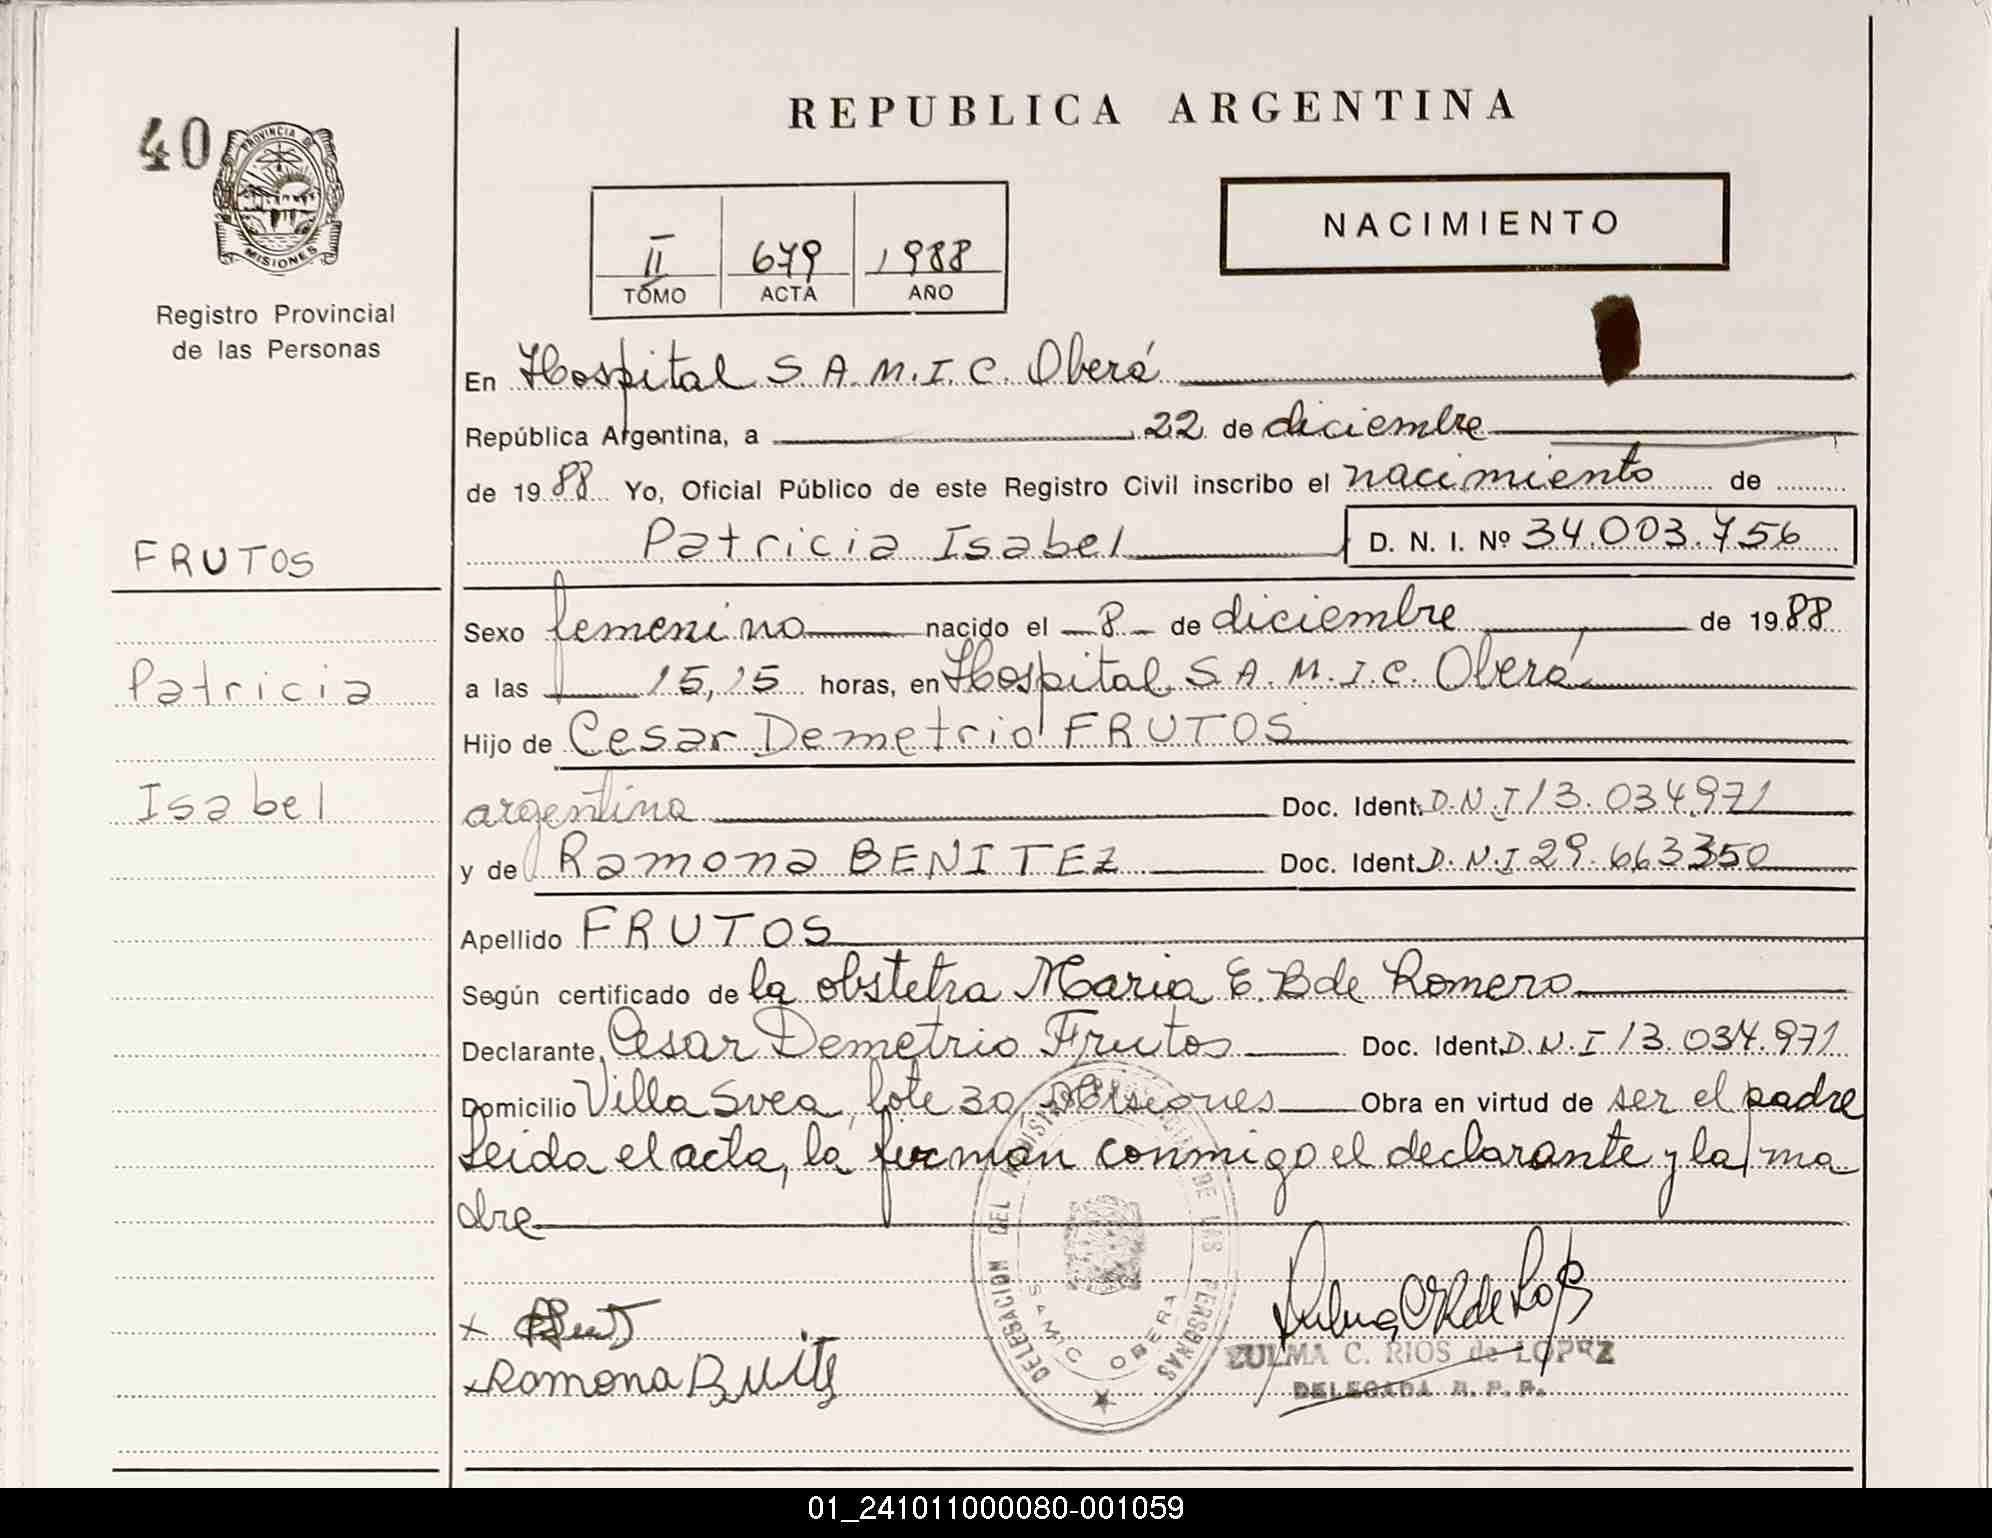 REPUBLICA ARGENTINA
40
PROVINCIA DE
MISIONES
Registro Provincial
de las Personas
NACIMIENTO
II 679 1988
TOMO ACTA AÑO
En Hospital S.A.M.I.C. Oberá
República Argentina, a 22 de diciembre
de 1988 Yo, Oficial Público de este Registro Civil inscribo el nacimiento de
Patricia Isabel D. N. I. Nº 34.003.756
FRUTOS
Patricia
Isabel
Sexo femenino nacido el 8 de diciembre de 1988
a las 15,15 horas, en Hospital S.A.M.I.C. Oberá
Hijo de Cesar Demetrio FRUTOS
argentino Doc. Ident. D.N.I 13.034.971
y de Ramona BENITEZ Doc. Ident. D.N.I 29.663350
Apellido FRUTOS
Según certificado de la obstetra Maria E. B de Romero
Declarante, Cesar Demetrio Frutos Doc. Ident. D.N.I 13.034.971
Domicilio Villa Svea, lote 30, Misiones Obra en virtud de ser el padre
Leida el acta, la firman conmigo el declarante y la ma
dre
DELEGACION DEL REGISTRO PROVINCIAL DE LAS PERSONAS
SAMIC OBERA
x
x Ramona
ZULMA C. RIOS de LOPEZ
DELEGADA R. P. P.
01_241011000080-001059